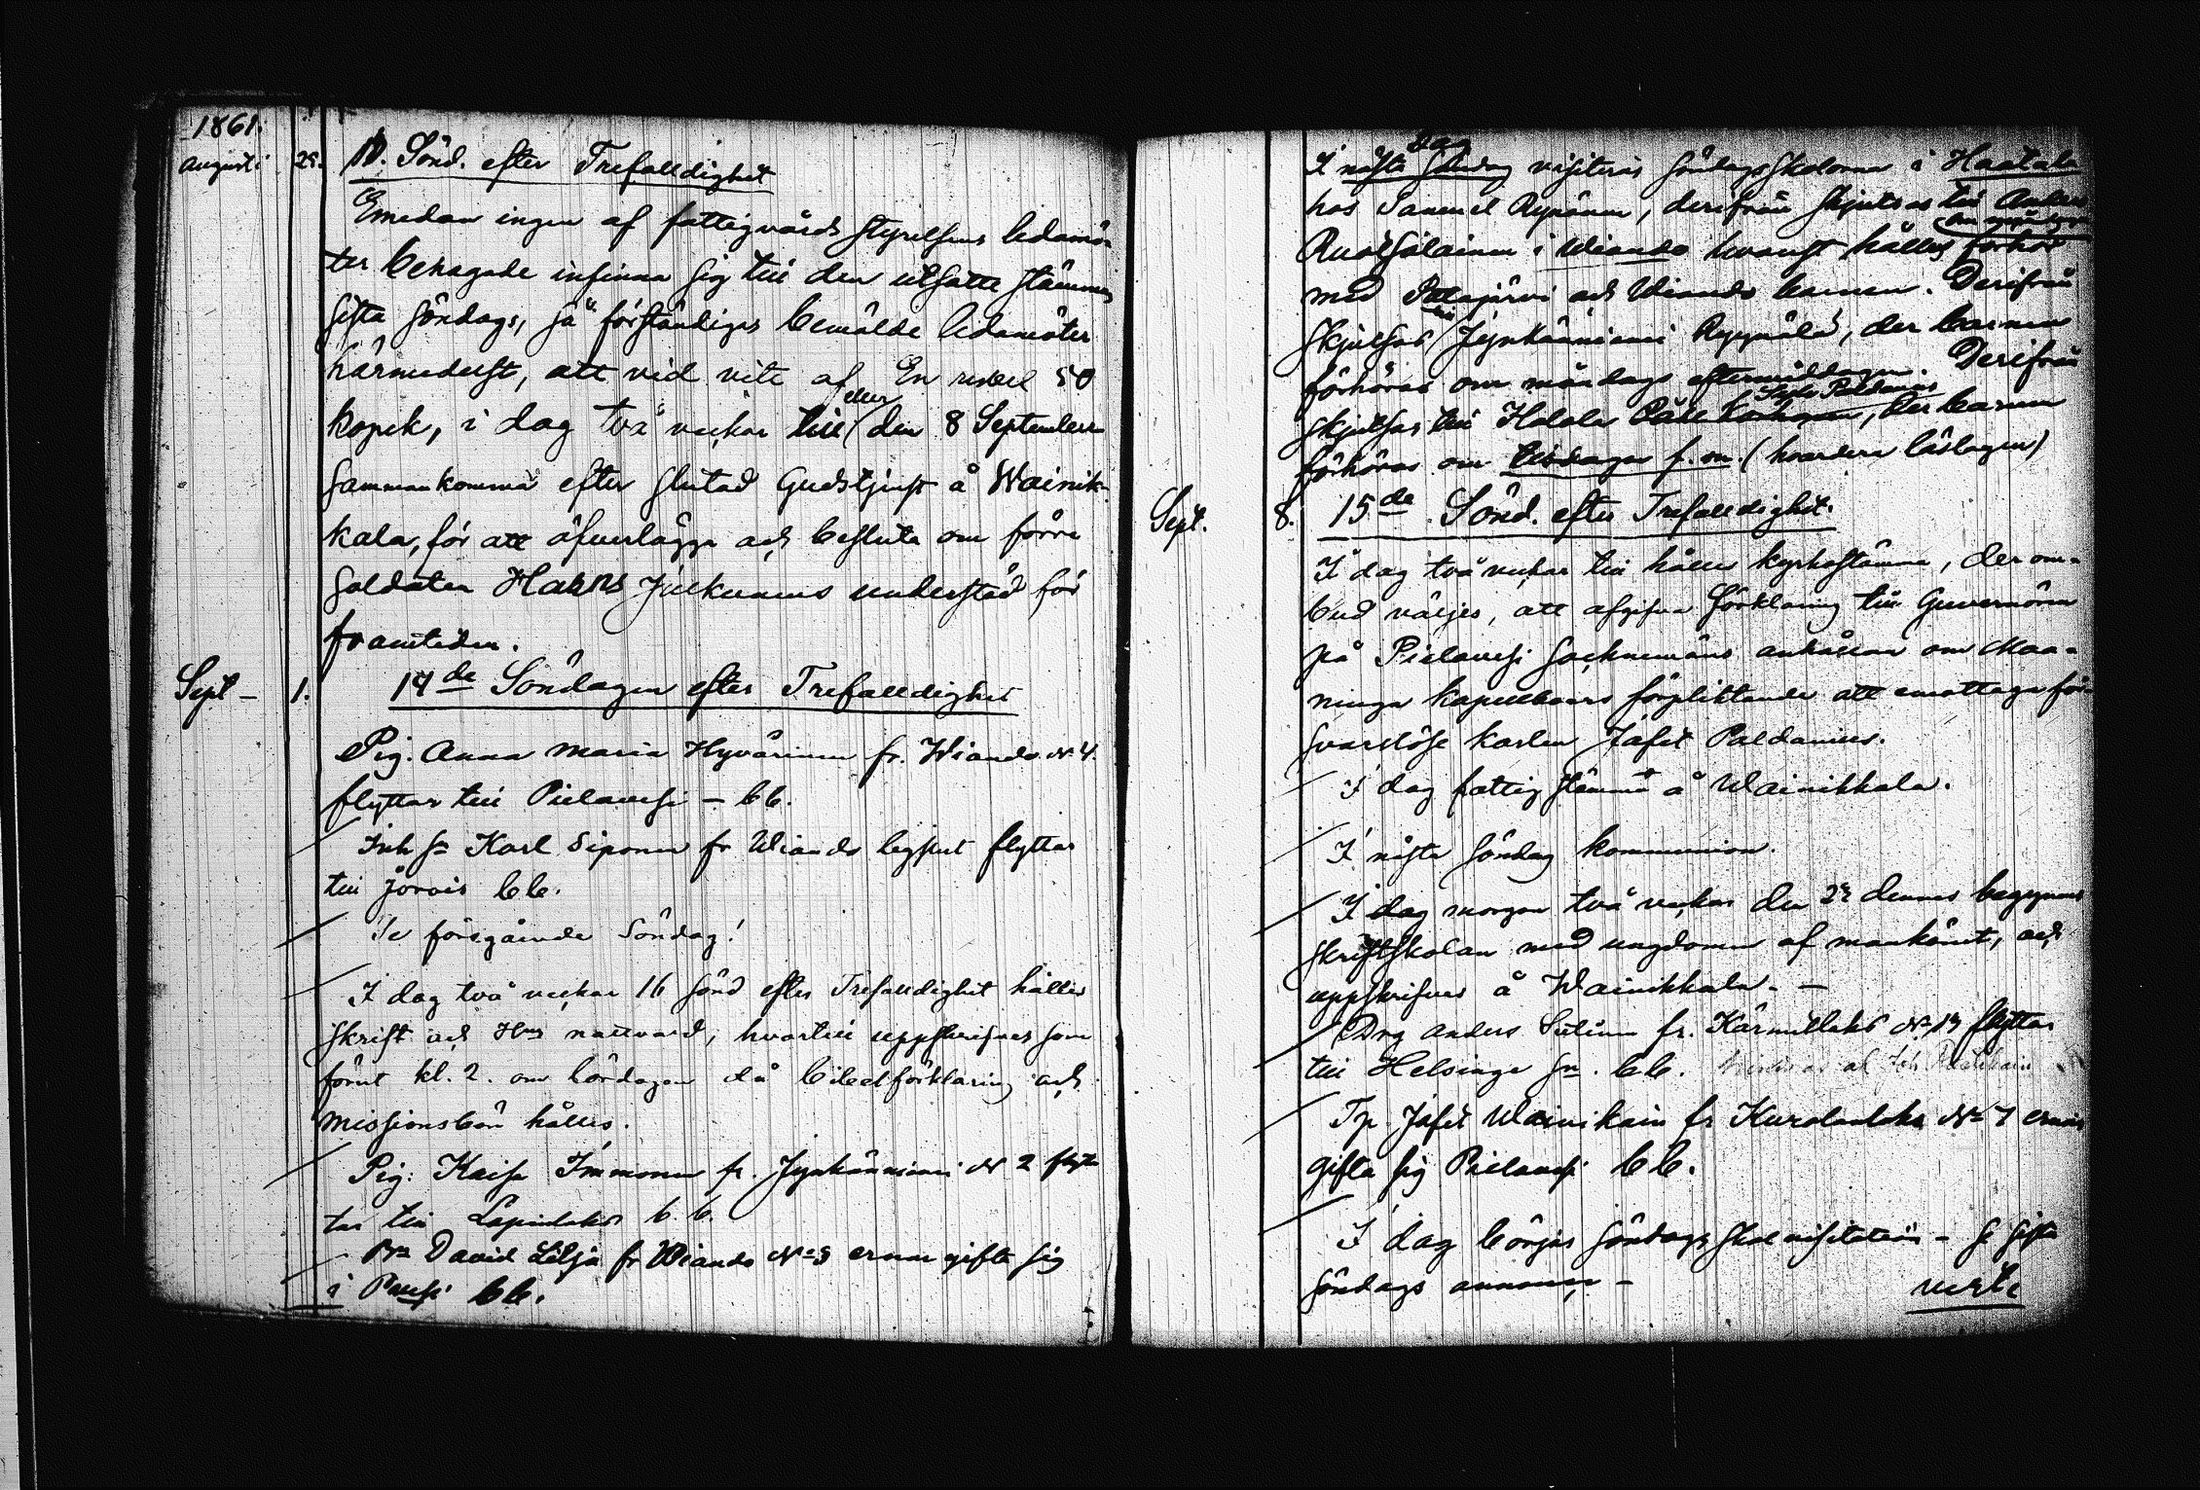 1861.
Augusti 25. Sönd. efter Trefalldighet
Emedan ingen af fattigvårds styrelsens ledamö-
ter behagade infinna sig till den utsatte stämman
sista söndags, så förständigas bemälde ledamöter
härmedelst, att vid vite af En rubel 50
kopek, i dag två veckor till eller den 8 September
sammankomma efter slutad Gudstjenst å Wainik-
kala, för att öfverlägga och besluta om förre
soldaten Hans Julkunens understöd för
framtiden.
Sept – 1. 14de Söndagen efter Trefalldighet
Pig. Anna Maria Hyvärinen fr. Wiando N 4.
flyttar till Pielavesi – b b.
Inh sn Karl Siponen fr Wiando flyttar
till Jorois b b.
Se föregående Söndag!
I dag två veckor 16 sönd efter Trefalldighet hålles
skrift och Hns nattvard, hvartill uppskrifves som
förut kl. 2. om lördagen då bibelförklaring och
missionsbön hålles.
Pig: Kaisa Immonen fr. Jynkänniemi N 2 flyt-
tar till Lapinlaks b. b.
David Lilja fr Wiando No 3 ernar gifta sig
i b b.
I nästa Söndag Dag visiteras söndagsskolorna i Haatala
hos Samuel Rypönen, derifrån skjutsas till Anders
Ruotsalainen i Wiando hvarest hålles förhör
med Patajärvi och Wiando barnen. Derifrån
skjutsas till Jynkänniemi, der barnen
förhöras om måndags eftermiddagen. Derifrån
skjutsas till Halola, der barnen
förhöras om tisdagen f. m. (hvardera läslagen)
Sept. 8. 15de Sönd. efter Trefalldighet.
I dag två veckor till hålles kyrkostämma, der om-
bud väljes, att afgifva förklaring till Guvernören
på Pielavesi sockenmäns anhållan om Maa-
ninga kapellboers förpliktande att emottaga för-
svarslöse karlen Jafet Paldanius.
I dag fattig stämma å Wainikkala.
I nästa söndag kommunion.
I dag morgon två veckor den 23 dennes begynnes
skriftskolan med ungdomen af mankönet, och
uppskrifves å Wainikkala. –
Drg Anders fr. Kärmillaks No 13 flyttar
till Helsinge sn. b b.
Tp. Jafet Wainikain fr Kurolanlaks No 7 ernar
gifta sig Pielavesi b b.
I dag börjas söndags skol visitation – se sista
söndags annons –
vert.